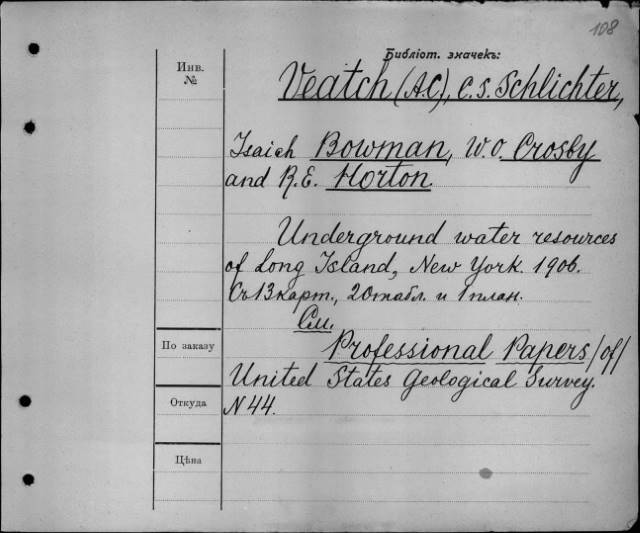 108
Библіот. значекъ:
Инв.
№
Veatch (A.C), C.S. Schlichter,
Isaich Bowman, W.O. Crosby
and R.E. Horton.
Underground water resources
of Long Island, New York. 1906.
Съ 13 карт., 20 табл. и 1 план.
См.
По заказу
Professional Papers /of/
United States Geological Survey.
Откуда
N 44.
Цѣна